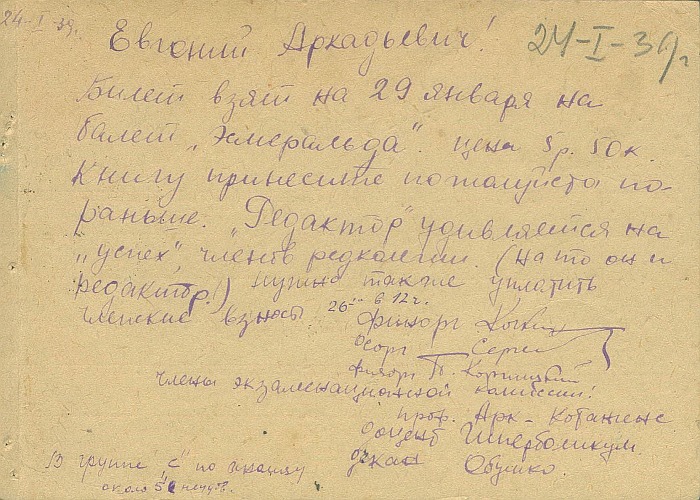 24-I-39г.
Евгений Аркадьевич! 24-I-39г
Билет взят на 29 января на
балет „Эсмеральда". цена 5р. 50к.
Книгу принесите пожалуйста по-
раньше. „Редактор" удивляется на
„успех", членов редколегии. (на то он и
редактор!) нужно также уплатить
членские взносы. 26 в 12 ч.
Финорг
Осорг Серги
физорг В.
члены экзаменационной комиссии:
проф. Арк-Котангенс
доцент Гиперболикум
декан Обушко.
В группе „С" по
около 5